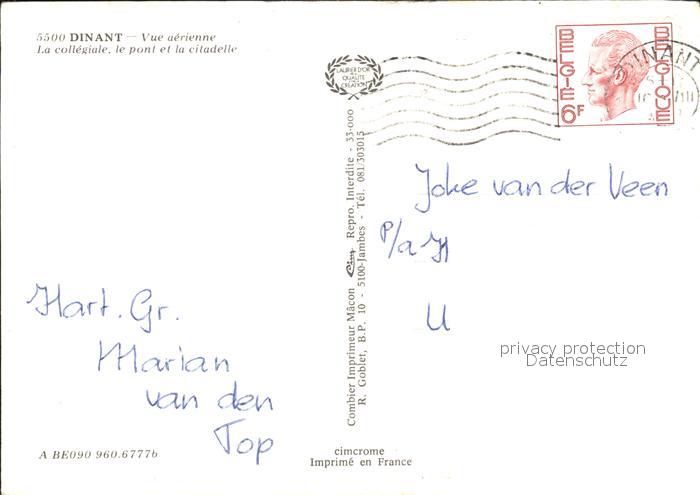 5500 DINANT — Vue aérienne
La collégiale, le pont et la citadelle
LAURIER D'OR
DE LA
QUALITÉ
CRÉATION
BELGIË
BELGIQUE
6F
DINANT
Joke van der Veen
P/a
U
Hart. Gr.
Marian
van den
Top
Combier Imprimeur Mâcon Cim Repro. Interdite - 33-000
R. Goblet, B.P. 10 - 5100-Jambes - Tél. 081/303015
privacy protection
Datenschutz
A BE090 960.6777b
cimcrome
Imprimé en France